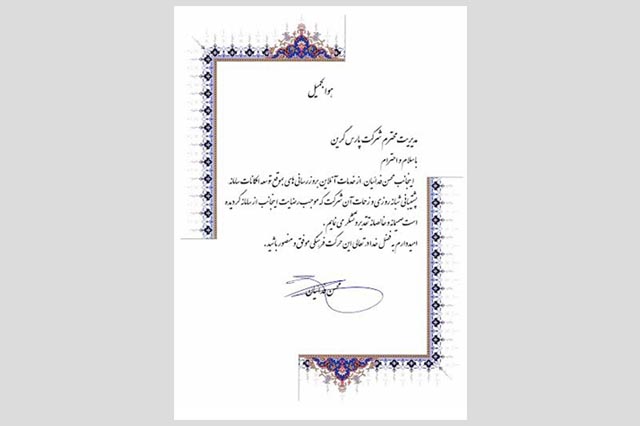 هوا لجمیل
مدیریت محترم شرکت پارس گرین
با سلام و احترام
اینجانب محسن فدائیان از خدمات آنلاین بروزرسانی های بموقع توسعه امکانات سامانه
پشتیبانی شبانه روزی و زحمات آن شرکت که موجب رضایت اینجانب از سامانه گردیده
است صمیمانه و خالصانه تقدیر و تشکر می نمایم .
امیدوارم به فضل خداوند تعالی این حرکت فرهنگی موفق و منصور باشید .
محسن فدائیان